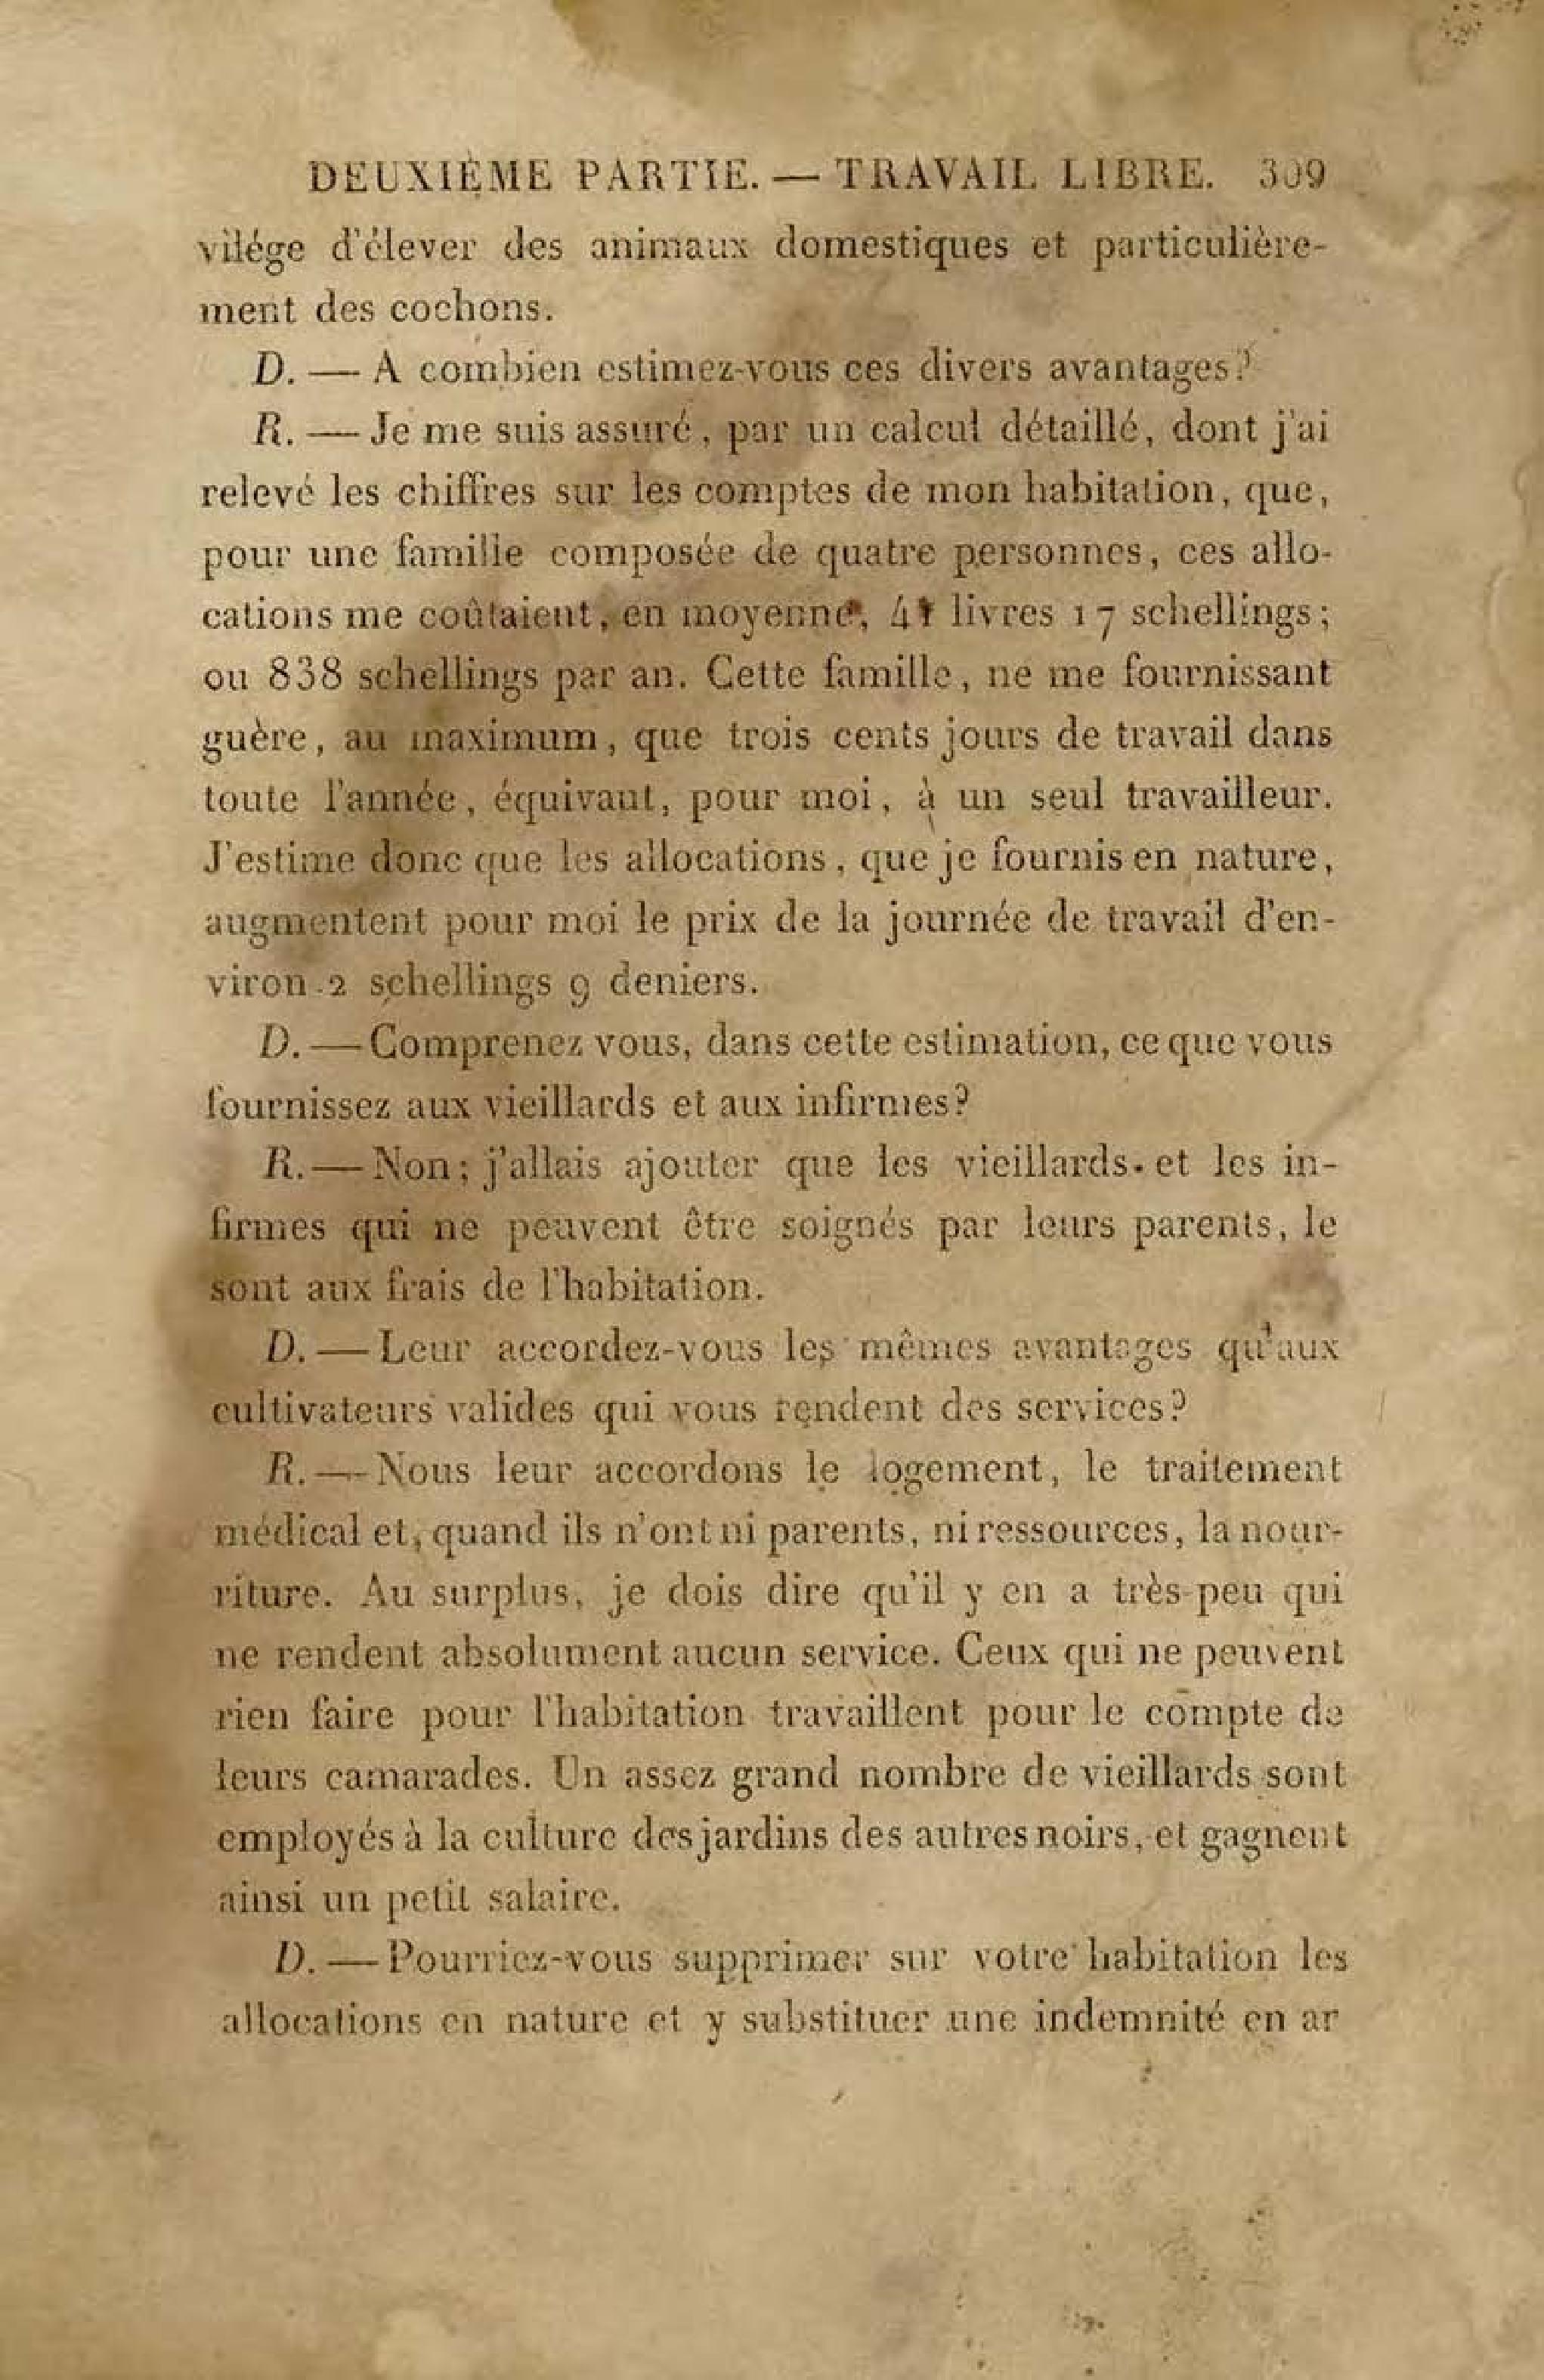 DEUXIÈME PARTIE. — TRAVAIL LIBRE. 309
vilége d'élever des animaux domestiques et particulière-
ment des cochons.
D. — A combien estimez-vous ces divers avantages?
R. — Je me suis assuré, par un calcul détaillé, dont j'ai
relevé les chiffres sur les comptes de mon habitation, que,
pour une famille composée de quatre personnes, ces allo-
cations me coûtaient, en moyenne, 41 livres 17 schellings;
ou 838 schellings par an. Cette famille, ne me fournissant
guère, au maximum, que trois cents jours de travail dans
toute l'année, équivaut, pour moi, à un seul travailleur.
J'estime donc que les allocations, que je fournis en nature,
augmentent pour moi le prix de la journée de travail d'en-
viron 2 schellings 9 deniers.
D. — Comprenez vous, dans cette estimation, ce que vous
fournissez aux vieillards et aux infirmes?
R. — Non; j'allais ajouter que les vieillards et les in-
firmes qui ne peuvent être soignés par leurs parents, le
sont aux frais de l'habitation.
D. — Leur accordez-vous les mêmes avantages qu'aux
cultivateurs valides qui vous rendent des services?
R. — Nous leur accordons le logement, le traitement
médical et, quand ils n'ont ni parents, ni ressources, la nour-
riture. Au surplus, je dois dire qu'il y en a très-peu qui
ne rendent absolument aucun service. Ceux qui ne peuvent
rien faire pour l'habitation travaillent pour le compte de
leurs camarades. Un assez grand nombre de vieillards sont
employés à la culture des jardins des autres noirs, et gagnent
ainsi un petit salaire.
D. — Pourriez-vous supprimer sur votre habitation les
allocations en nature et y substituer une indemnité en ar